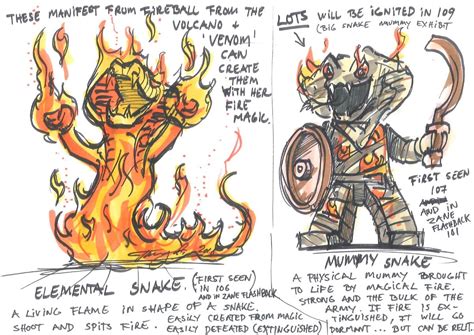 THESE MANIFEST FROM FIREBALL FROM THE
VOLCANO +
'VENOM'
CAN
CREATE
THEM
WITH HER
FIRE
MAGIC.
LOTS WILL BE IGNITED IN 109
(BIG SNAKE MUMMY EXHIBIT
FIRST SEEN
107
AND IN
ZANE
FLASHBACK
101
ELEMENTAL SNAKE. (FIRST SEEN)
IN 106
AND IN ZANE FLASHBACK
A LIVING FLAME IN SHAPE OF A SNAKE.
EASILY CREATED FROM MAGIC
SHOOT AND SPITS FIRE. EASILY DEFEATED (EXTINGUISHED)
MUMMY SNAKE
A PHYSICAL MUMMY BROUGHT
TO LIFE BY MAGICAL FIRE.
STRONG AND THE BULK OF THE
ARMY. IF FIRE IS EX-
TINGUISHED, IT WILL GO
DORMANT... BUT CAN BE RE-